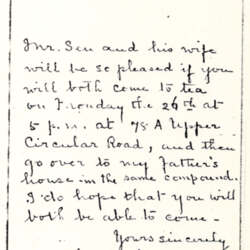 Mr. Sen and his wife
will be so pleased if you
will both come to tea
on Monday the 26th at
5 p.m. at 78 A Upper
Circular Road, and then
go over to my Father's
house in the same compound.
I do hope that you will
both be able to come -
Yours sincerely